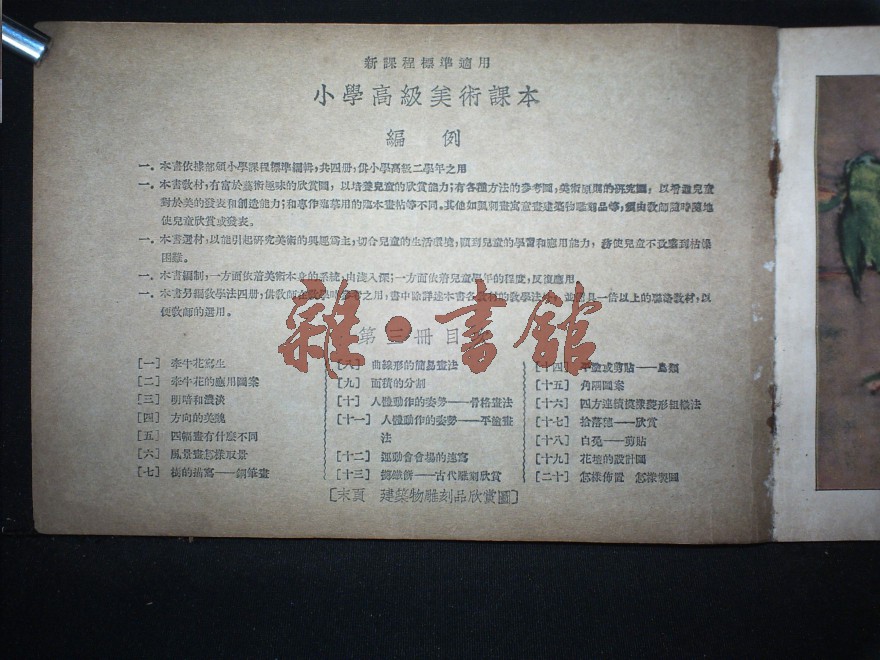 新課程標準適用
小學高級美術課本
編例
一．本書依據部頒小學課程標準編輯，共四册，供小學高級二學年之用
一．本書教材，有富於藝術趣味的欣賞圖，以培養兒童的欣賞能力；有各種方法的參考圖，美術原則的研究圖，以增進兒童
對於美的發表和創造能力；和專作臨摹用的臨本畫帖等不同。其他如諷刺畫寓意畫建築物雕刻品等，須由教師隨時隨地
使兒童欣賞或發表。
一．本書選材，以能引起研究美術的興趣爲主，切合兒童的生活環境，顧到兒童的學習和應用能力，務使兒童不致感到枯燥
困難。
一．本書編制，一方面依着美術本身的系統，由淺入深；一方面依着兒童學年的程度，反覆應用
一．本書另編教學法四册，供教師在教學時參考之用，書中除詳述本書各教材的教學法外，並附具一倍以上的聯絡教材，以
便教師的選用。
第三冊目
雜·書館
[一] 牽牛花寫生
[二] 牽牛花的應用圖案
[三] 明暗和濃淡
[四] 方向的美醜
[五] 四幅畫有什麼不同
[六] 風景畫怎樣取景
[七] 樹的描寫——鋼筆畫
[八] 曲線形的簡易畫法
[九] 面積的分割
[十] 人體動作的姿勢——骨格畫法
[十一] 人體動作的姿勢——平塗畫
法
[十二] 運動會會場的速寫
[十三] 擲鐵餅——古代雕刻欣賞
[十四] 平塗或剪貼——鳥類
[十五] 角隅圖案
[十六] 四方連續模樣菱形組織法
[十七] 拾落穗——欣賞
[十八] 白兔——剪貼
[十九] 花壇的設計圖
[二十] 怎樣佈置 怎樣製圖
[末頁 建築物雕刻品欣賞圖]